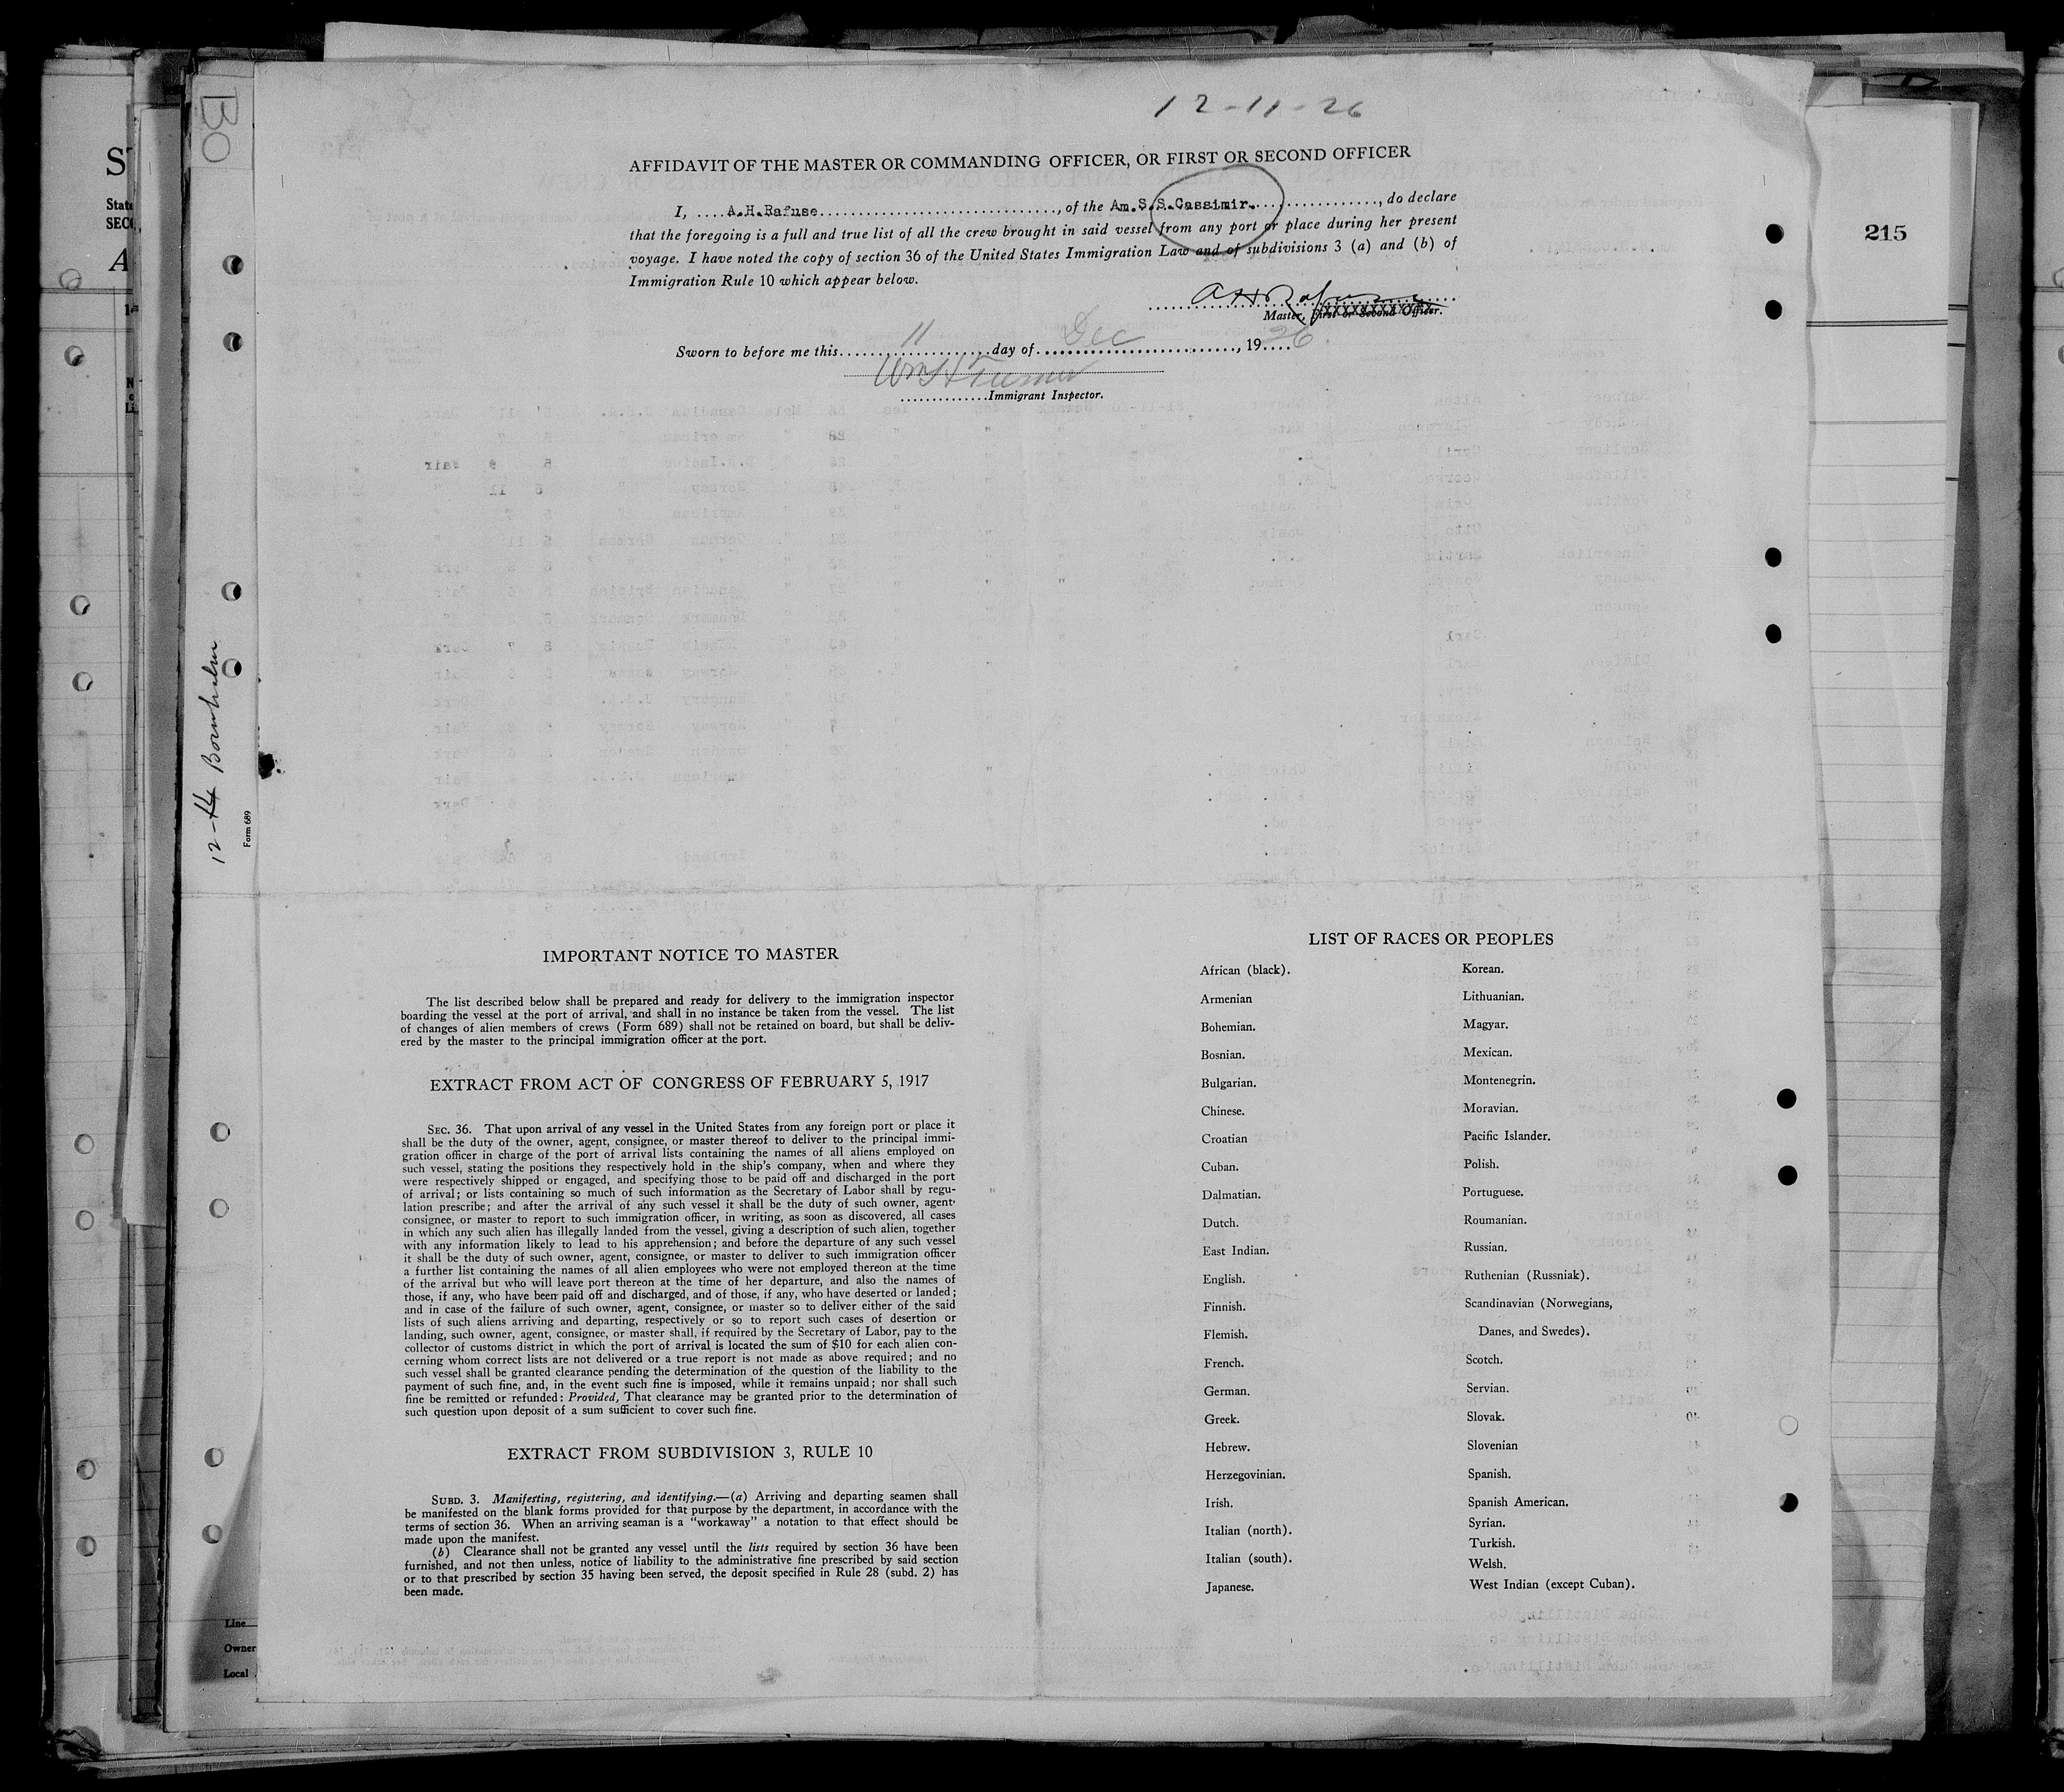 12-11-26
AFFIDAVIT OF THE MASTER OR COMMANDING OFFICER, OR FIRST OR SECOND OFFICER
I, ....A.H.Rafuse..............................., of the Am.S.S.Cassimir..................., do declare
that the foregoing is a full and true list of all the crew brought in said vessel from any port or place during her present
voyage. I have noted the copy of section 36 of the United States Immigration Law and of subdivisions 3 (a) and (b) of
Immigration Rule 10 which appear below.
A H Rafuse
Master, First or Second Officer.
Sworn to before me this........11............day of.......Dec..................., 19 26.
Wm H Turner
..............Immigrant Inspector.
IMPORTANT NOTICE TO MASTER
The list described below shall be prepared and ready for delivery to the immigration inspector
boarding the vessel at the port of arrival, and shall in no instance be taken from the vessel. The list
of changes of alien members of crews (Form 689) shall not be retained on board, but shall be deliv-
ered by the master to the principal immigration officer at the port.
EXTRACT FROM ACT OF CONGRESS OF FEBRUARY 5, 1917
SEC. 36. That upon arrival of any vessel in the United States from any foreign port or place it
shall be the duty of the owner, agent, consignee, or master thereof to deliver to the principal immi-
gration officer in charge of the port of arrival lists containing the names of all aliens employed on
such vessel, stating the positions they respectively hold in the ship's company, when and where they
were respectively shipped or engaged, and specifying those to be paid off and discharged in the port
of arrival; or lists containing so much of such information as the Secretary of Labor shall by regu-
lation prescribe; and after the arrival of any such vessel it shall be the duty of such owner, agent,
consignee, or master to report to such immigration officer, in writing, as soon as discovered, all cases
in which any such alien has illegally landed from the vessel, giving a description of such alien, together
with any information likely to lead to his apprehension; and before the departure of any such vessel
it shall be the duty of such owner, agent, consignee, or master to deliver to such immigration officer
a further list containing the names of all alien employees who were not employed thereon at the time
of the arrival but who will leave port thereon at the time of her departure, and also the names of
those, if any, who have been paid off and discharged, and of those, if any, who have deserted or landed;
and in case of the failure of such owner, agent, consignee, or master so to deliver either of the said
lists of such aliens arriving and departing, respectively or so to report such cases of desertion or
landing, such owner, agent, consignee, or master shall, if required by the Secretary of Labor, pay to the
collector of customs district in which the port of arrival is located the sum of $10 for each alien con-
cerning whom correct lists are not delivered or a true report is not made as above required; and no
such vessel shall be granted clearance pending the determination of the question of the liability to the
payment of such fine, and, in the event such fine is imposed, while it remains unpaid; nor shall such
fine be remitted or refunded: Provided, That clearance may be granted prior to the determination of
such question upon deposit of a sum sufficient to cover such fine.
EXTRACT FROM SUBDIVISION 3, RULE 10
SUBD. 3. Manifesting, registering, and identifying.—(a) Arriving and departing seamen shall
be manifested on the blank forms provided for that purpose by the department, in accordance with the
terms of section 36. When an arriving seaman is a "workaway" a notation to that effect should be
made upon the manifest.
(b) Clearance shall not be granted any vessel until the lists required by section 36 have been
furnished, and not then unless, notice of liability to the administrative fine prescribed by said section
or to that prescribed by section 35 having been served, the deposit specified in Rule 28 (subd. 2) has
been made.
LIST OF RACES OR PEOPLES
African (black).
Armenian
Bohemian.
Bosnian.
Bulgarian.
Chinese.
Croatian
Cuban.
Dalmatian.
Dutch.
East Indian.
English.
Finnish.
Flemish.
French.
German.
Greek.
Hebrew.
Herzegovinian.
Irish.
Italian (north).
Italian (south).
Japanese.
Korean.
Lithuanian.
Magyar.
Mexican.
Montenegrin.
Moravian.
Pacific Islander.
Polish.
Portuguese.
Roumanian.
Russian.
Ruthenian (Russniak).
Scandinavian (Norwegians,
Danes, and Swedes).
Scotch.
Servian.
Slovak.
Slovenian
Spanish.
Spanish American.
Syrian.
Turkish.
Welsh.
West Indian (except Cuban).
Bo
12-14 Bornholm
Form 689
Line
Owner
Local
State
215